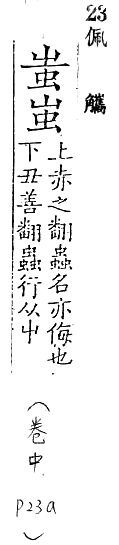 23
佩觿
蚩
上赤之翻蟲名亦侮也
下丑善翻蟲行从屮
(卷中
P23a)